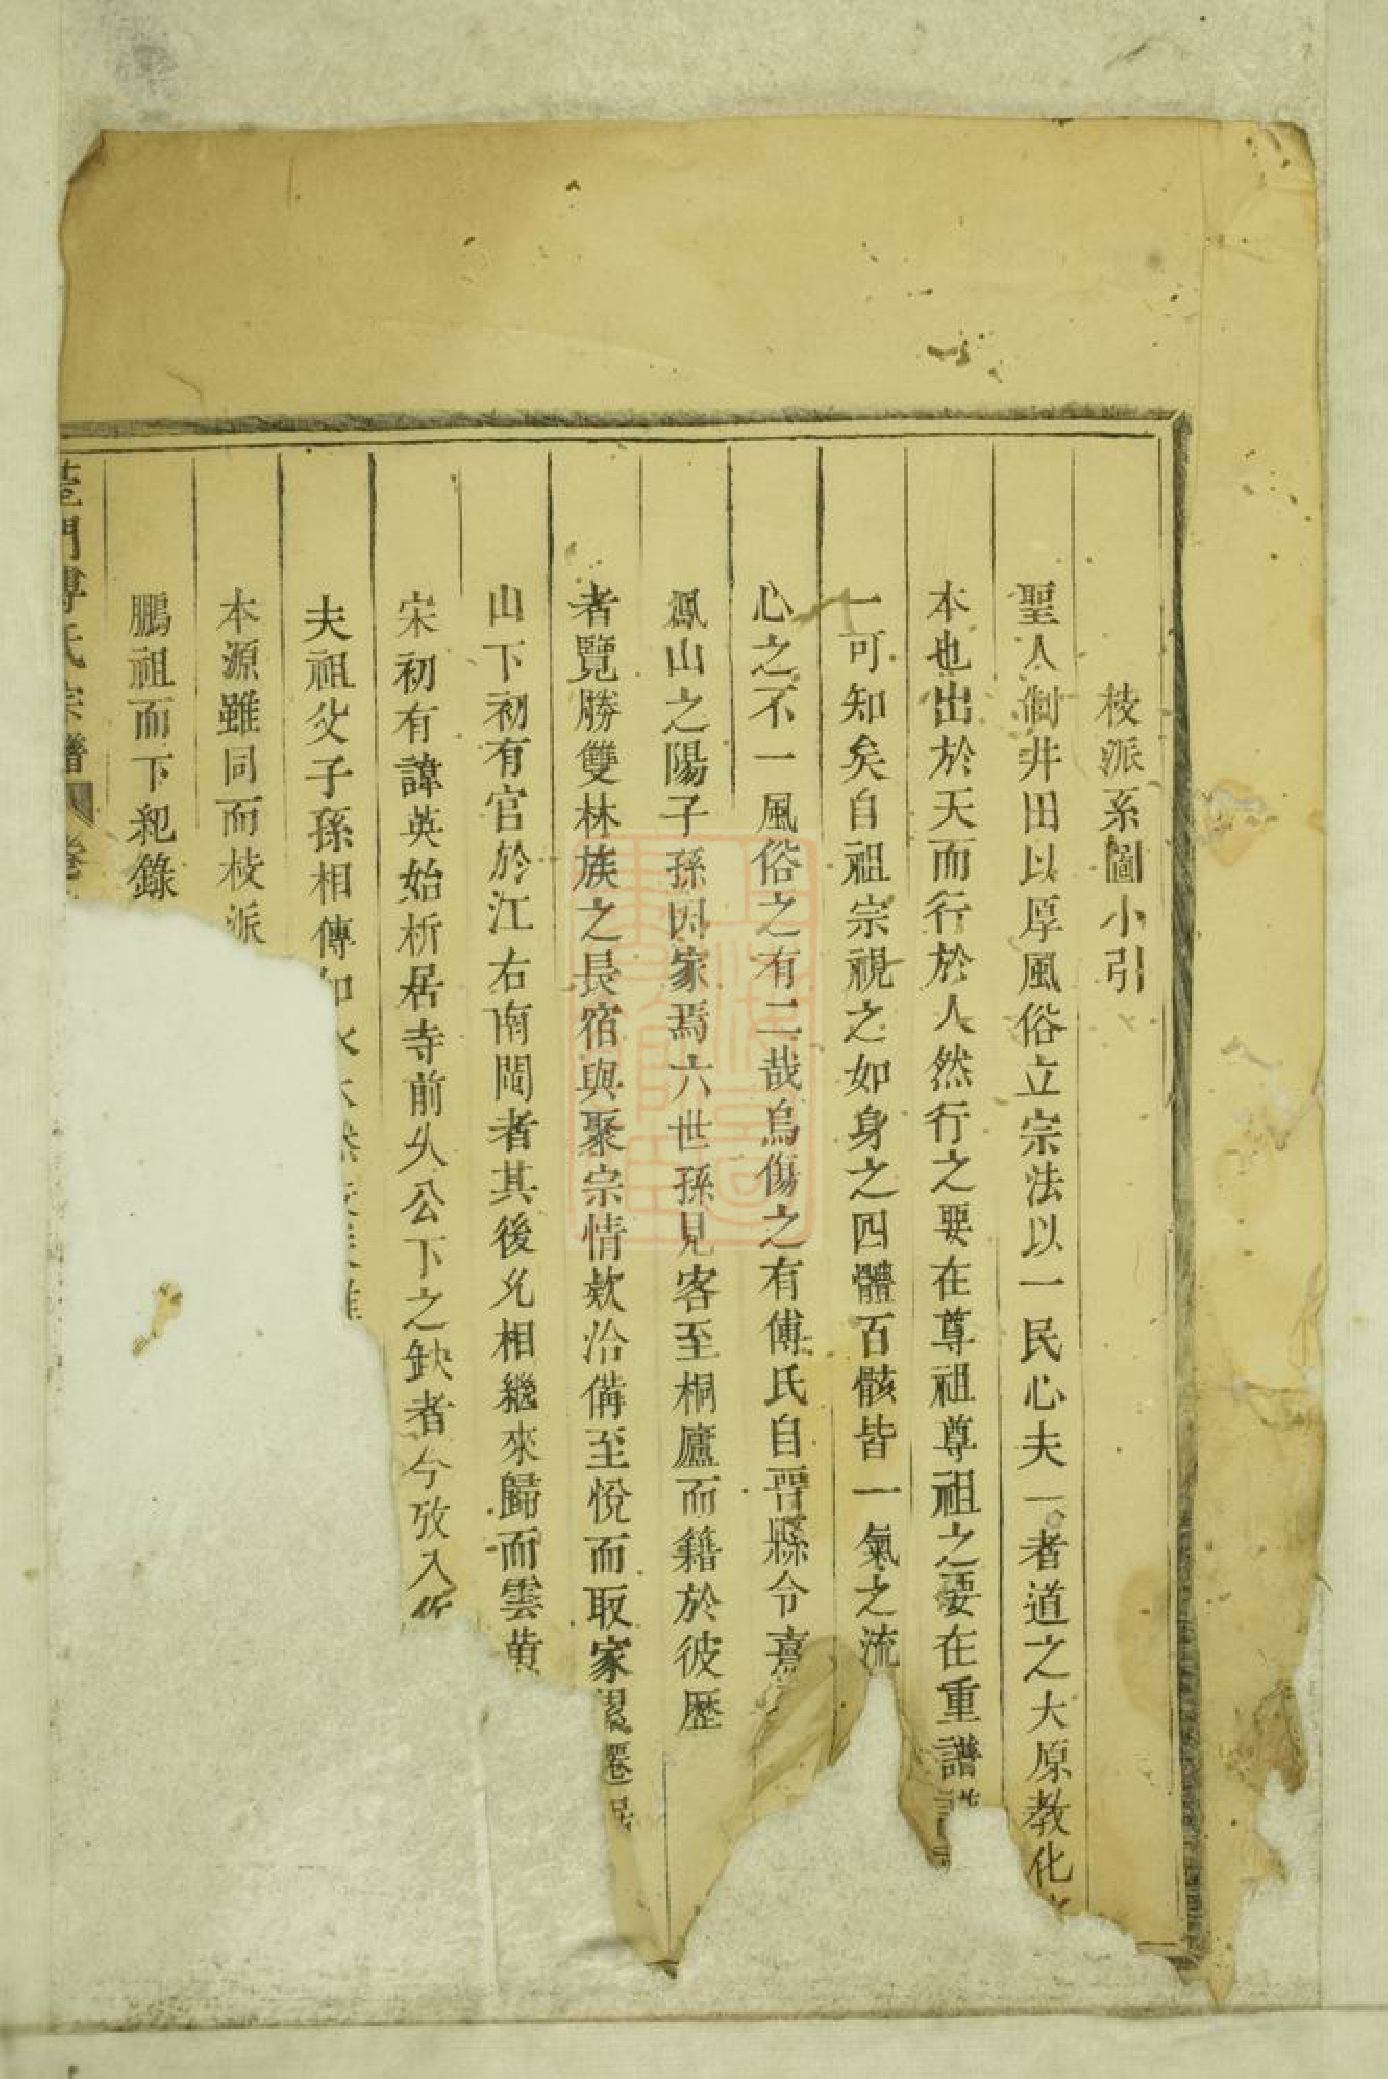 枝派系圖小引
聖人制井田以厚風俗立宗法以一民心夫一者道之大原教化
本也出於天而行於人然行之要在尊祖尊祖之要在重譜
一可知矣自祖宗視之如身之四體百骸皆一氣之流
心之不一風俗之有二哉烏傷之有傅氏自晋縣令
鳳山之陽子孫因家焉六世孫見客至桐廬而籍於彼歷
者覽勝雙林族之長宿與聚宗情欵洽備至悅而取家
山下初有官於江右南閩者其後允相繼來歸而雲黄
宋初有諱英始析居寺前乆公下之缺者今攷入
夫祖父子孫相傳如水木
本源雖同而枝派
鵬祖而下紀錄
門傅氏宗譜 卷